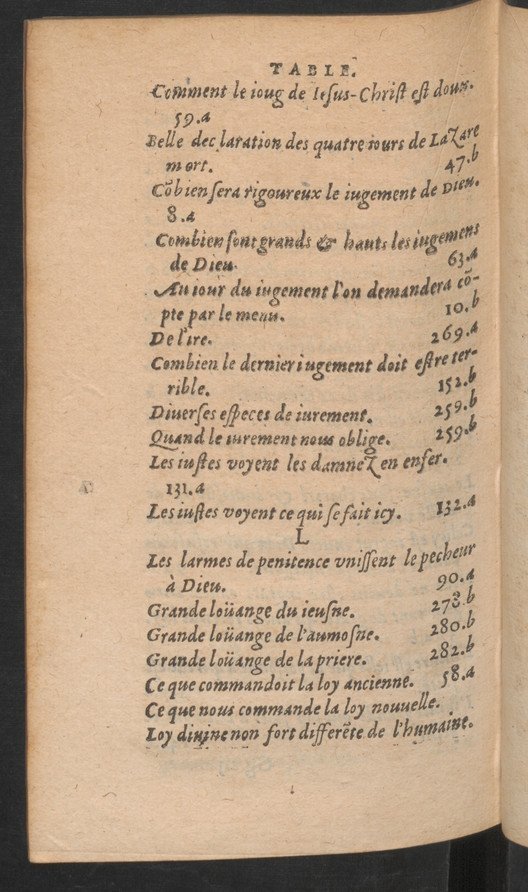 TABLE.
Comment le ioug de Iesus-Christ est doux.
59.a
Belle declaration des quatre iours de Lazare
mort. 47.b
Cõbien sera rigoureux le iugement de Dieu.
8.a
Combien sont grands & hauts les iugemens
de Dieu. 63.a
Au iour du iugement l'on demandera cõ-
pte par le menu. 10.b
De l'ire. 269.a
Combien le dernier iugement doit estre ter-
rible. 152.b
Diuerses especes de iurement. 259.b
Quand le iurement nous oblige. 259.b
Les iustes voyent les damnez en enfer.
131.a
Les iustes voyent ce qui se fait icy. 132.a
L
Les larmes de penitence vnissent le pecheur
à Dieu. 90.a
Grande loüange du ieusne. 278.b
Grande loüange de l'aumosne. 280.b
Grande loüange de la priere. 282.b
Ce que commandoit la loy ancienne. 58.a
Ce que nous commande la loy nouuelle.
Loy diuine non fort differẽte de l'humaine.